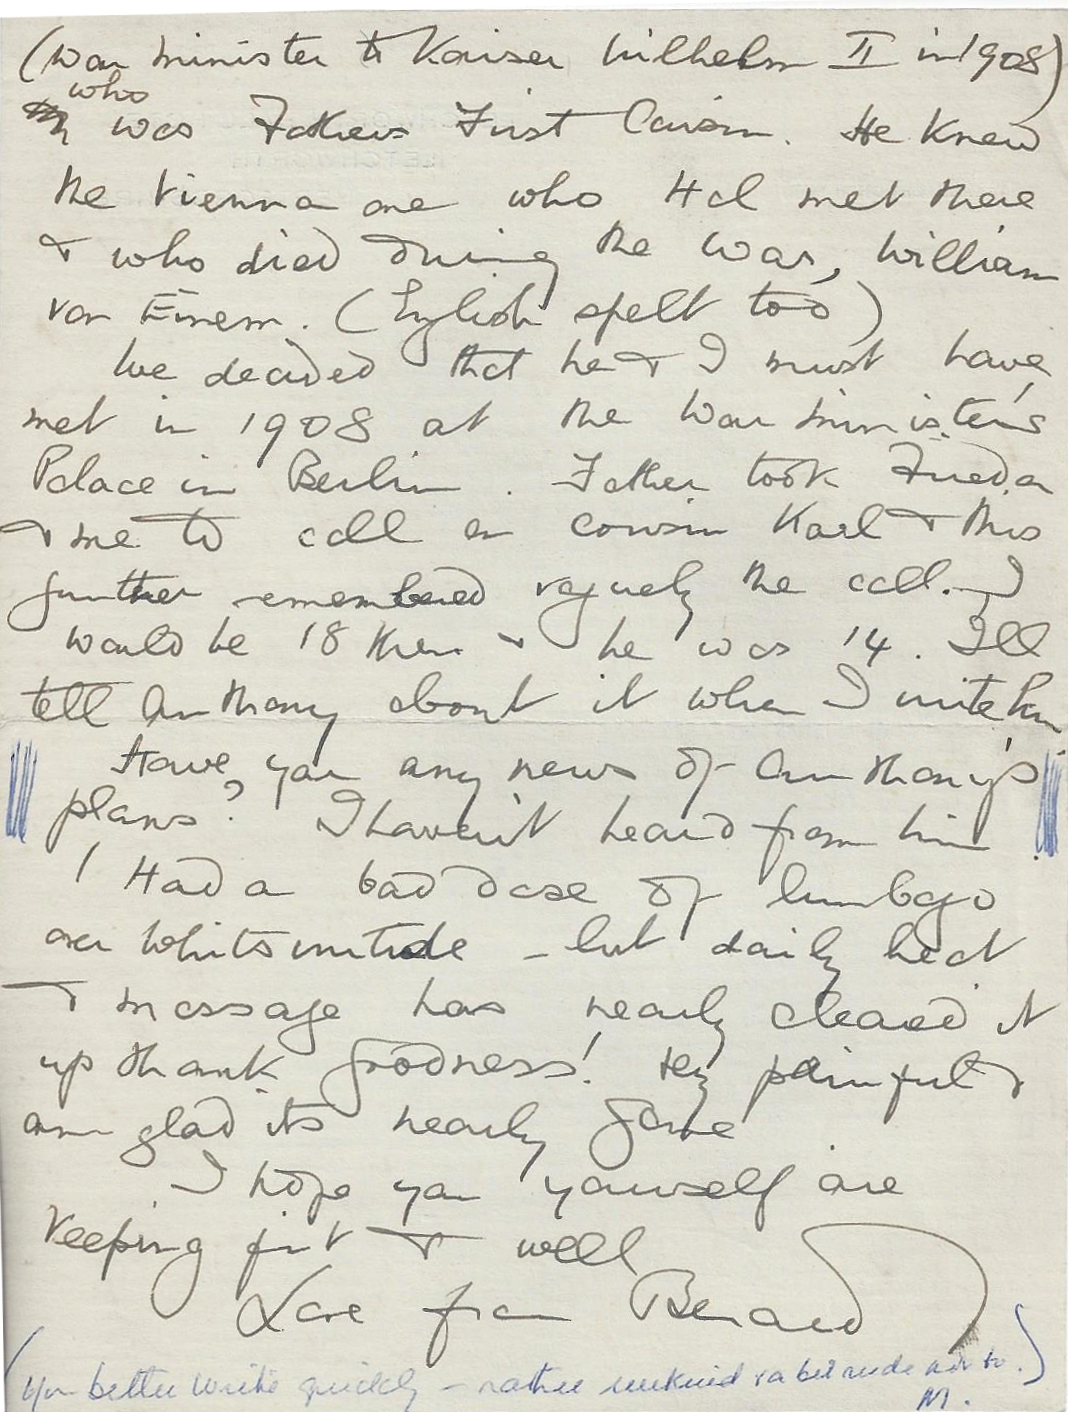 (War Minister to Kaiser Wilhelm II in 1908)
who
was Fathers First Cousin. He knew
the Vienna one who Hal met there
& who died during the war, William
von Einem. (English spelt too)
We decided that he & I must have
met in 1908 at the War Minister's
Palace in Berlin. Father took Frieda
& me to call on cousin Karl & this
further remembered vaguely the call. I
would be 18 then & he was 14. Ill
tell Anthony about it when I write him
Have you any news of Anthony's
plans? I haven't heard from him!
I Had a bad dose of lumbago
over Whitsuntide - but daily heat
& massage has nearly cleared it
up thank goodness! Very painful &
am glad its nearly gone
I hope you yourself are
keeping fit & well
Love from Benard
(You better write quickly - rather unkind & a bit rude not to.)
M.